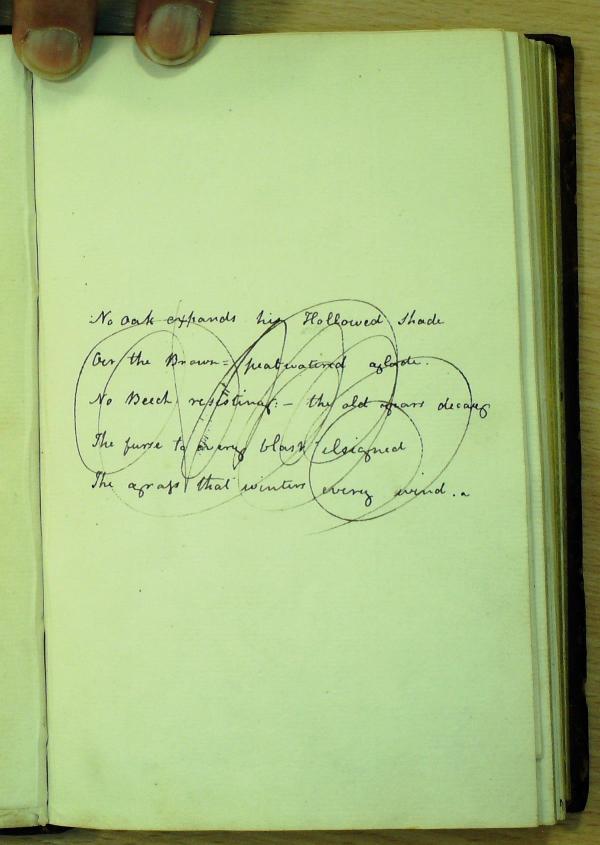 No Oak expands his Hollowed shade
Oer the Brown = peatwatered glade.
No Beech resisting:- the old years decay
The furse to every blast resigned
The grass that winters every wind.